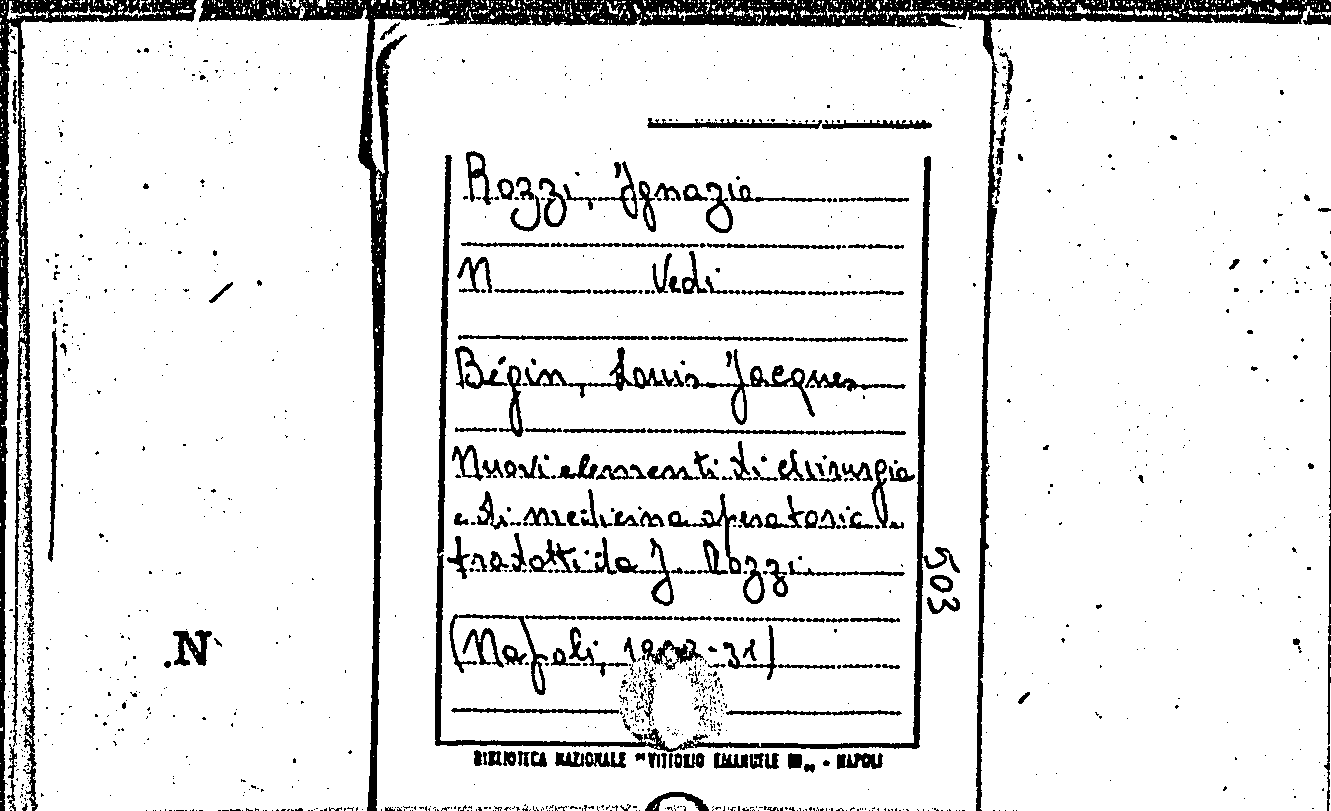 Rozzi, Ignazio
N Vedi
Bégin, Louis Jacques
Nuovi elementi di chirurgia
e di medicina operatoria
tradotti da J. Rozzi.
(Napoli,
503
.N
BIBLIOTECA NAZIONALE "VITTORIO EMANUELE III„ - NAPOLI